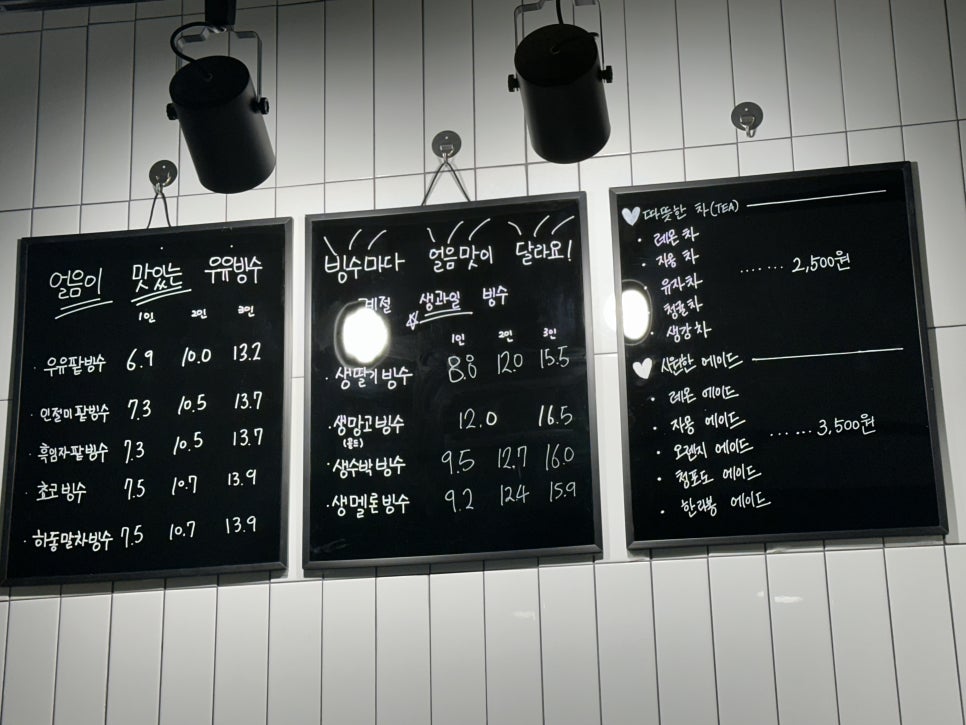 얼음이 맛있는 우유빙수
1인 2인 3인
· 우유팥빙수 6.9 10.0 13.2
· 인절미 팥빙수 7.3 10.5 13.7
· 흑임자팥빙수 7.3 10.5 13.7
· 초코빙수 7.5 10.7 13.9
· 하동말차빙수 7.5 10.7 13.9
빙수마다 얼음맛이 달라요!
계절 생과일 빙수
1인 2인 3인
· 생딸기빙수 8.8 12.0 15.5
· 생망고빙수 12.0 16.5
(골드)
· 생수박빙수 9.5 12.7 16.0
· 생멜론빙수 9.2 12.4 15.9
따뜻한 차(TEA)
· 레몬차
· 자몽차
· 유자차 ...... 2,500원
· 청귤차
· 생강차
시원한 에이드
· 레몬 에이드
· 자몽 에이드
· 오렌지 에이드 ...... 3,500원
· 청포도 에이드
· 한라봉 에이드